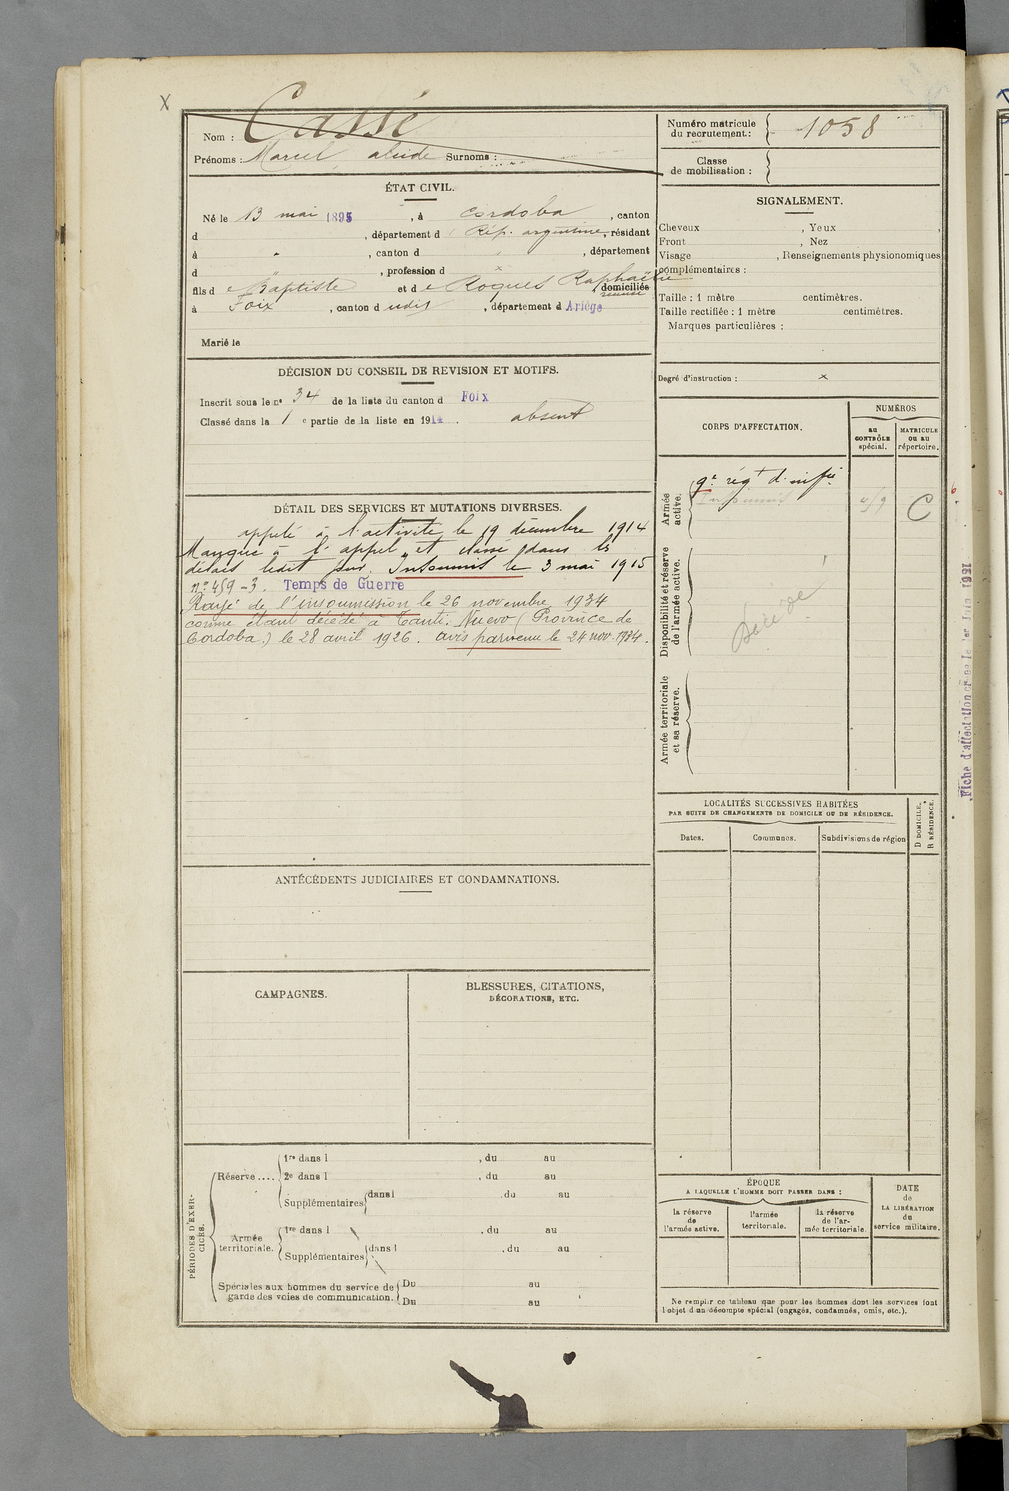 X
Nom : Cassé
Prénoms : Marcel alcide Surnoms :
Numéro matricule du recrutement : 1058
Classe de mobilisation :
ÉTAT CIVIL.
Né le 13 mai 1895, à Cordoba, canton
d , département d Rép. argentine, résidant
à , canton d , département
d , profession d x
fils de Baptiste et de Roques Raphaëlle domiciliés
à Foix, canton d udit, département d Ariège
Marié le
SIGNALEMENT.
Cheveux , Yeux ,
Front , Nez
Visage , Renseignements physionomiques
complémentaires :
Taille : 1 mètre centimètres.
Taille rectifiée : 1 mètre centimètres.
Marques particulières :
Degré d'instruction : x
DÉCISION DU CONSEIL DE REVISION ET MOTIFS.
Inscrit sous le nº 34 de la liste du canton d Foix
Classé dans la 1 e partie de la liste en 1914. absent
DÉTAIL DES SERVICES ET MUTATIONS DIVERSES.
appelé à l'activité le 19 décembre 1914
Manque à l'appel et classé dans les
délais ledit jour. Insoumis le 3 mai 1915
nº 459-3. Temps de Guerre
Rayé de l'insoumission le 26 novembre 1934
comme étant décédé à Nuevo (Province de
Cordoba.) le 28 avril 1926. avis parvenu le 24 nov. 1934.
CORPS D'AFFECTATION.
NUMÉROS
AU CONTRÔLE spécial.
MATRICULE OU AU répertoire.
Armée active.
9e régt d'inf
Insoumis
C
Disponibilité et réserve de l'armée active.
Décédé
Armée territoriale et sa réserve.
LOCALITÉS SUCCESSIVES HABITÉES
PAR SUITE DE CHANGEMENTS DE DOMICILE OU DE RÉSIDENCE.
D DOMICILE.
R RÉSIDENCE.
Dates.
Communes.
Subdivisions de région
ANTÉCÉDENTS JUDICIAIRES ET CONDAMNATIONS.
CAMPAGNES.
BLESSURES, CITATIONS,
DÉCORATIONS, ETC.
PÉRIODES D'EXERCICES.
Réserve....
1re dans l , du au
2e dans l , du au
Supplémentaires dans l , du au
Armée territoriale.
1re dans l , du au
Supplémentaires dans l , du au
Spéciales aux hommes du service de garde des voies de communication.
Du au
Du au
ÉPOQUE
A LAQUELLE L'HOMME DOIT PASSER DANS :
la réserve de l'armée active.
l'armée territoriale.
la réserve de l'armée territoriale.
DATE de LA LIBÉRATION du service militaire.
Ne remplir ce tableau que pour les hommes dont les services font
l'objet d'un décompte spécial (engagés, condamnés, omis, etc.).